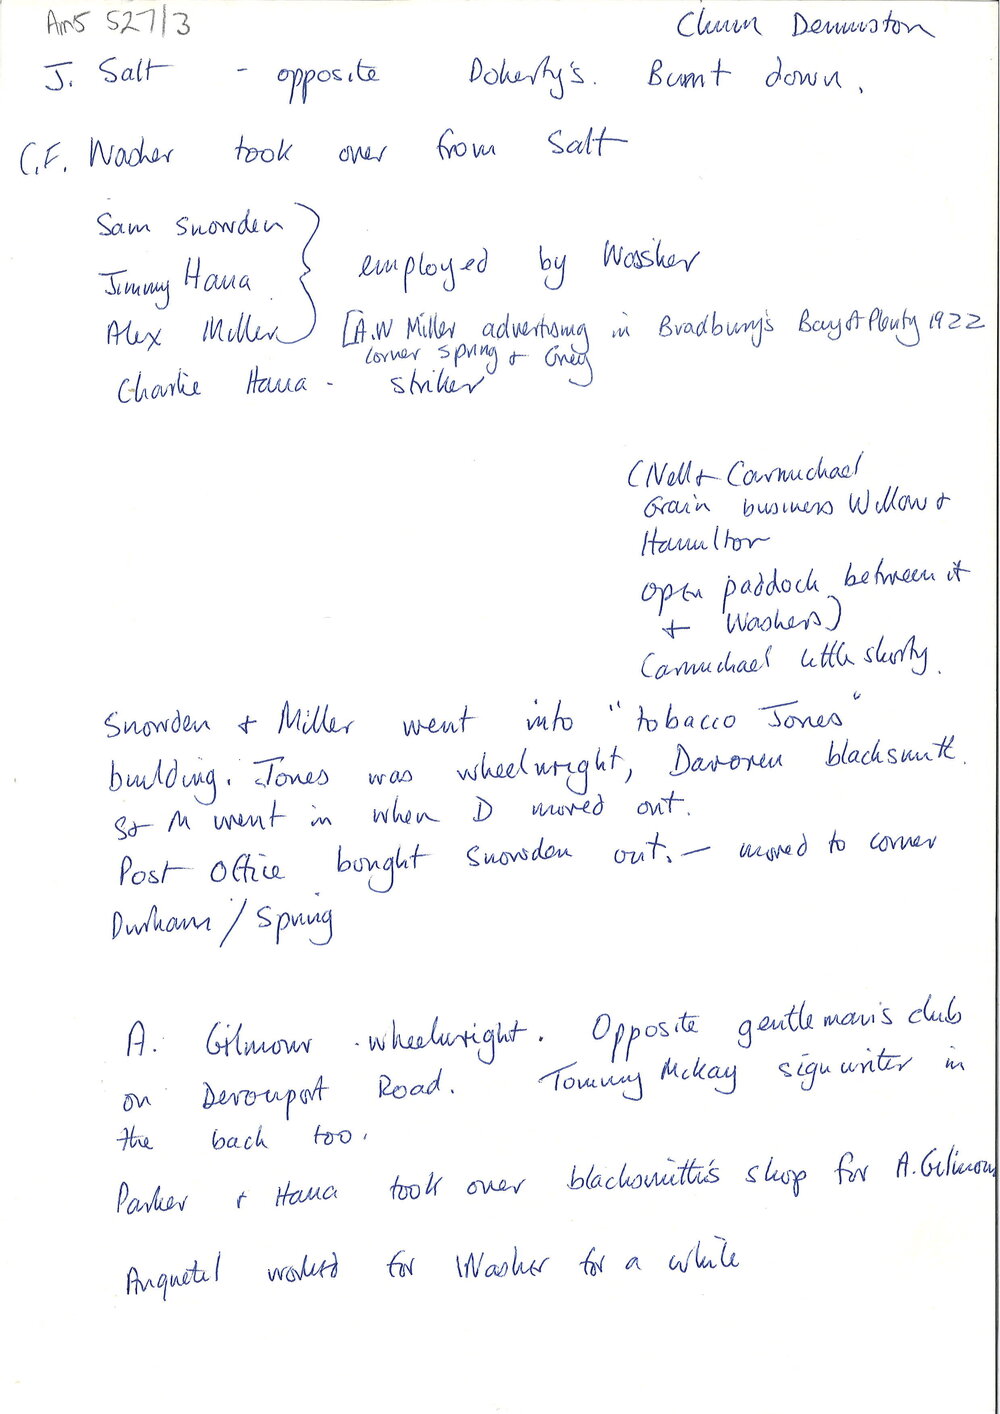 Ams 527/3
Chum Denniston
J. Salt - opposite Doherty's. Burnt down.
C.F. Washer took over from Salt
Sam Snowden
Jimmy Hana
employed by Wassher
Alex Miller
[A.W Miller advertising in Bradbury's Bay of Plenty 1922
corner Spring + Grey
Charlie Hana - striker
(Nell + Carmichael
Grain business Willow +
Hamilton
open paddock between it
+ Washers)
Carmichael little shorty.
Snowden + Miller went into "tobacco Jones"
building. Jones was wheelwright, Davoren blacksmith.
S + M went in when D moved out.
Post Office bought Snowden out. — moved to corner
Durham / Spring
A. Gilmour - wheelwright. Opposite gentleman's club
on Devonport Road. Tommy McKay signwriter in
the back too.
Parker + Hana took over blacksmith's shop for A. Gilmour
Anquetil worked for Washer for a while